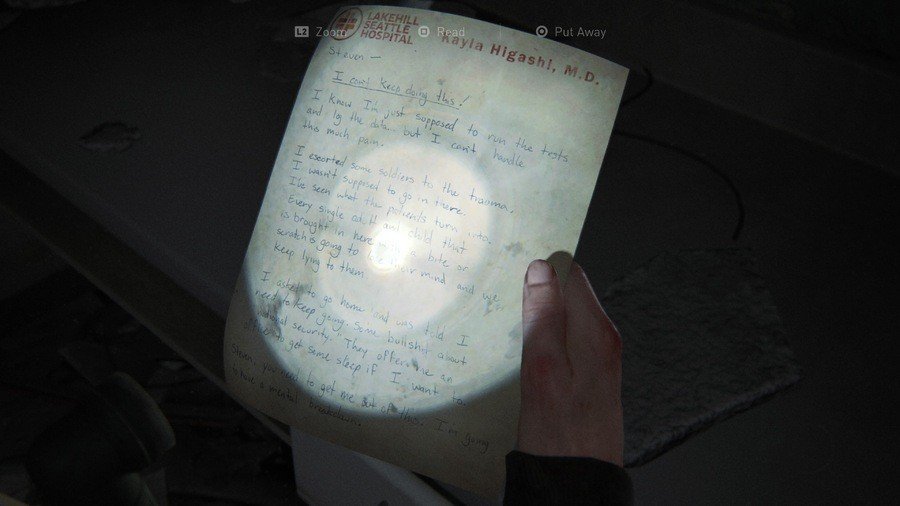 L2 Zoom Read Put Away
LAKEHILL
SEATTLE
HOSPITAL
Kayla Higashi, M.D.
Steven —
I can't keep doing this!
I know I'm just supposed to run the tests
and log the data... but I can't handle
this much pain.
I escorted some soldiers to the trauma.
I wasn't supposed to go in there.
I've seen what the patients turn into.
Every single adult and child that
is brought in here with a bite or
scratch is going to lose their mind and we
keep lying to them
I asked to go home and was told I
need to keep going. Some bullshit about
"national security." They offer me an
office to get some sleep if I want to.
Steven, you need to get me out of this. I'm going
to have a mental breakdown.